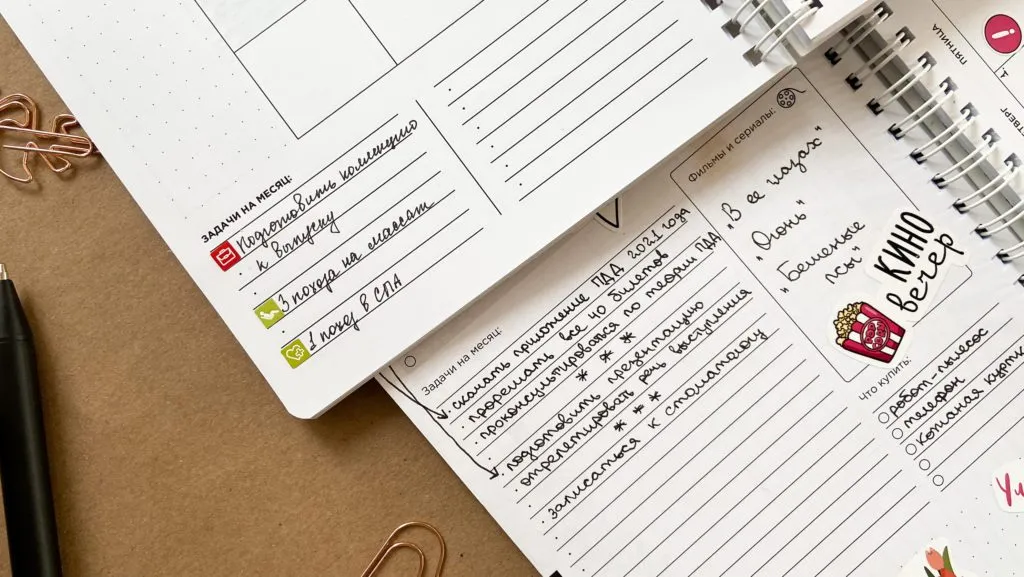 ЗАДАЧИ НА МЕСЯЦ:
Подготовить коллекцию
к выпуску
3 похода на массаж
1 поход в СПА
Задачи на месяц:
скачать приложение ПДД 2021 года
прорешать все 40 билетов
проконсультироваться по теории ПДД
* * *
подготовить презентацию
отрепетировать речь выступления
* * *
записаться к стоматологу
Фильмы и сериалы:
"В ее глазах"
"Огонь"
"Бешеные
псы"
КИНО
вечер
Что купить:
робот-пылесос
телефон
ПЯТНИЦА
1.